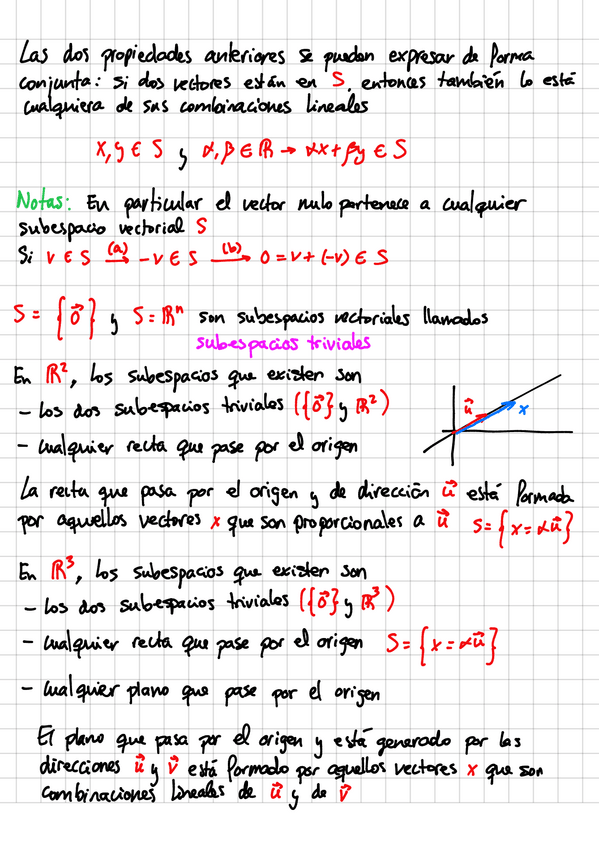 Las dos propiedades anteriores se pueden expresar de forma
conjunta: si dos vectores están en S, entonces también lo está
cualquiera de sus combinaciones lineales
x, y ∈ S y α, β ∈ ℝ → αx + βy ∈ S
Notas: En particular el vector nulo pertenece a cualquier
subespacio vectorial S
Si v ∈ S (a)⟶ -v ∈ S (b)⟶ 0 = v + (-v) ∈ S
S = {0⃗} y S = ℝⁿ son subespacios vectoriales llamados
subespacios triviales
En ℝ², los subespacios que existen son
- los dos subespacios triviales ({0⃗} y ℝ²)
u⃗ x
- cualquier recta que pase por el origen
La recta que pasa por el origen y de dirección u⃗ está formada
por aquellos vectores x que son proporcionales a u⃗ S = {x = αu⃗}
En ℝ³, los subespacios que existen son
- los dos subespacios triviales ({0⃗} y ℝ³)
- cualquier recta que pase por el origen S = {x = αu⃗}
- cualquier plano que pase por el origen
El plano que pasa por el origen y está generado por las
direcciones u⃗ y v⃗ está formado por aquellos vectores x que son
combinaciones lineales de u⃗ y de v⃗